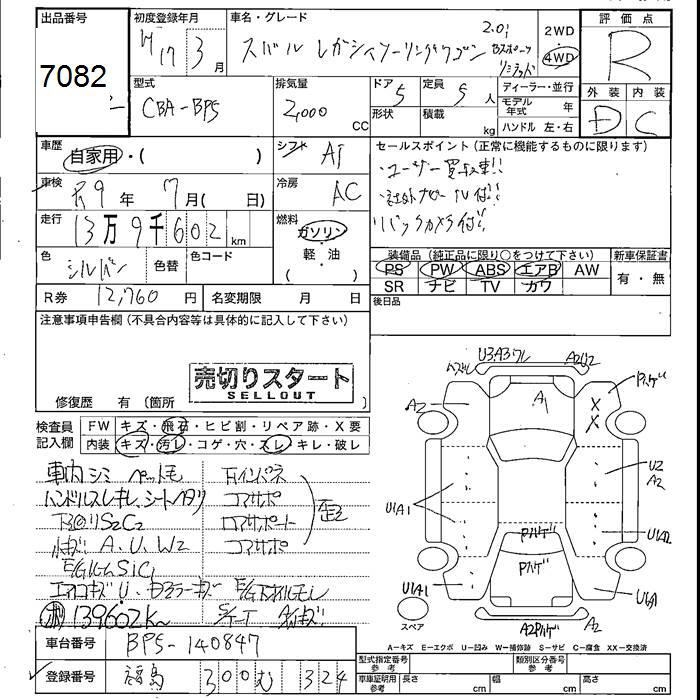 出品番号
7082
初度登録年月
H17 3月
車名・グレード
スバル レガシィツーリングワゴン
2.0i
Bスポーツ
リミテッド
2WD
4WD
評価点
R
型式
CBA-BP5
排気量
2,000
CC
ドア
5
形状
定員
5人
積載
kg
ディーラー・並行
モデル年式 年
ハンドル 左・右
外装 内装
D C
車歴
自家用・( )
シフト AT
車検
R9年 7月( 日)
冷房 AC
走行
13万9千602km
燃料
ガソリン
軽・油
( )
色
シルバー
色替
色コード
R券 12,760円
名変期限 月 日
セールスポイント(正常に機能するものに限ります)
・ユーザー買取車!!
・社外ナビ TV付!!
バックカメラ付!!
装備品(純正品に限り〇をつけて下さい)
PS PW ABS エアB AW
SR ナビ TV カワ
新車保証書
有・無
後日品
注意事項申告欄(不具合内容等は具体的に記入して下さい)
売切りスタート
SELLOUT
修復歴 有(箇所 )
検査員
記入欄
FW キズ・飛石・ヒビ割・リペア跡・X要
内装 キズ・汚レ・コゲ・穴・スレ・キレ・破レ
車内シミ ペットモ
右インパネ
ハンドルスレキレ、シートヘタリ
コアサポ
下回りS2C2
ロアサポート
歪
A、U、W2
コアサポ
E/GルームS1C1
エアコキズU
E/G下オイルモレ
139602K
車台番号 BP5-140847
登録番号 福島 300 む 324
U3.A3ワレ
A2U2
Pハゲ
A2
A1
X
X
U1A1
U2
A2
Pハゲ
Pハゲ
U1A1
A2Pハゲ
A2
スペア
A-キズ E-エクボ U-凹み W-補修跡 S-サビ C-腐食 XX-交換済
型式指定番号
参考
類別区分番号
参考
車庫証明用
参考
長さ cm
幅 cm
高さ cm